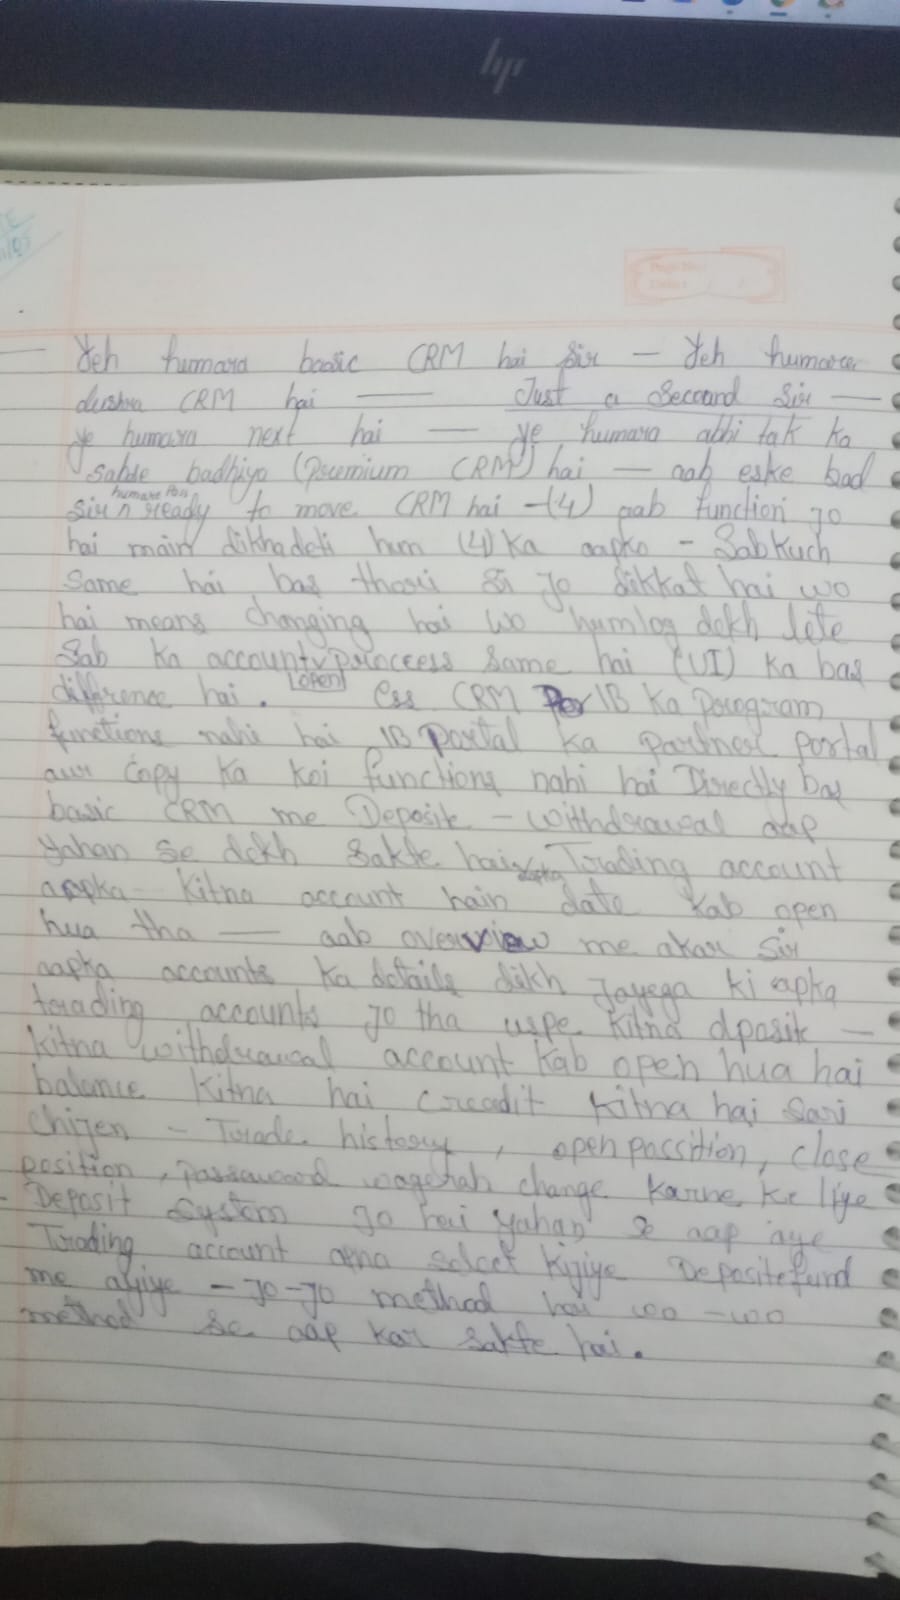 hp
Yeh humara basic CRM hai Sir — Yeh humara
dushra CRM hai — Just a Seccond Sir —
ye humara next hai — ye humara abhi tak ka
sabse badhiya (Premium CRM) hai — aab eske bad
humare Pass
Sir ready to move CRM hai - (4) aab function jo
hai main dikhadeti hum (4) ka aapko - Sabkuch
Same hai bas thori si jo dikkat hai wo
hai means changing hai wo humlog dekh lete
Sab ka account process same hai (UI) ka bas
open
difference hai . Ess CRM IB ka Program
functions nahi hai IB portal ka partner portal
aur copy ka koi functions nahi hai Directly bas
basic CRM me Deposite - withdrawal aap
yahan se dekh sakte hai Trading account
aapka kitna account hain date kab open
hua tha — aab overview me akar Sir
aapka accounts ka details dikh Jayega ki apka
trading accounts jo tha uspe kitna dposite —
kitna withdrawal account kab open hua hai
balance kitna hai creadit kitna hai sari
chijen - Trade history , open possition, close
position, password wagerah change karne ke liye
- Deposit System jo hai yahan se aap aye
Trading account apna select kijiye Deposite fund
me ajiye - jo-jo method hai wo - wo
method se aap kar sakte hai.